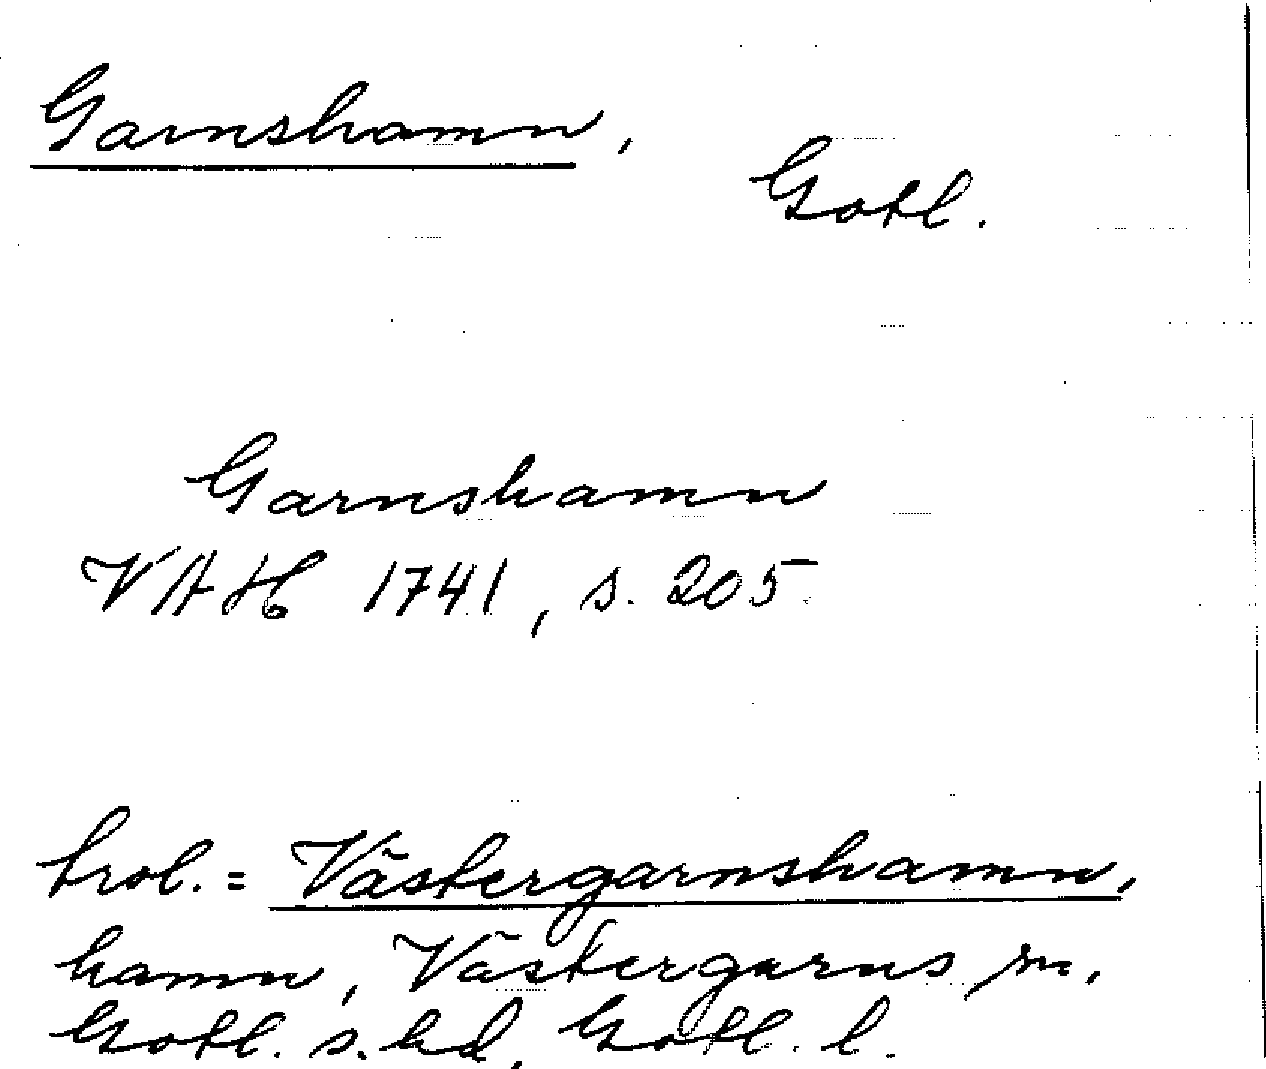 Garnshamn,
Gotl.
Garnshamn
VAH 1741, s. 205
trol. = Västergarnshamn,
hamn, Västergarns sn,
Gotl. s. hd, Gotl. l.